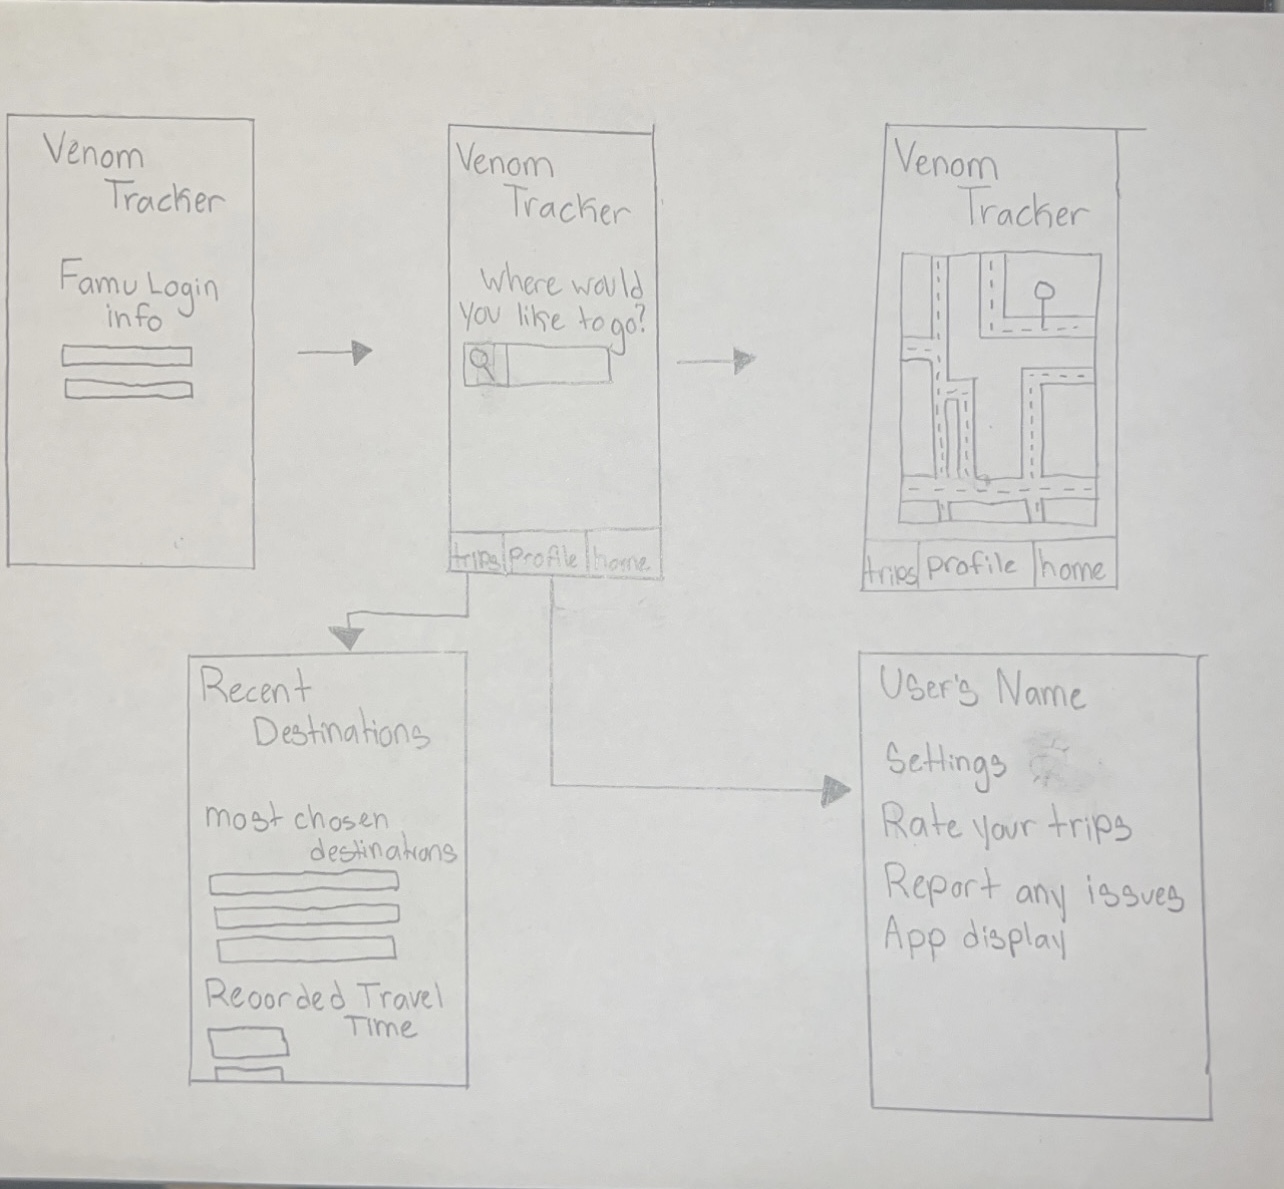 Venom
Tracker
Famu Login
info
Venom
Tracker
Where would
you like to go?
trips Profile home
Venom
Tracker
trips Profile home
Recent
Destinations
most chosen
destinations
Recorded Travel
Time
User's Name
Settings
Rate your trips
Report any issues
App display